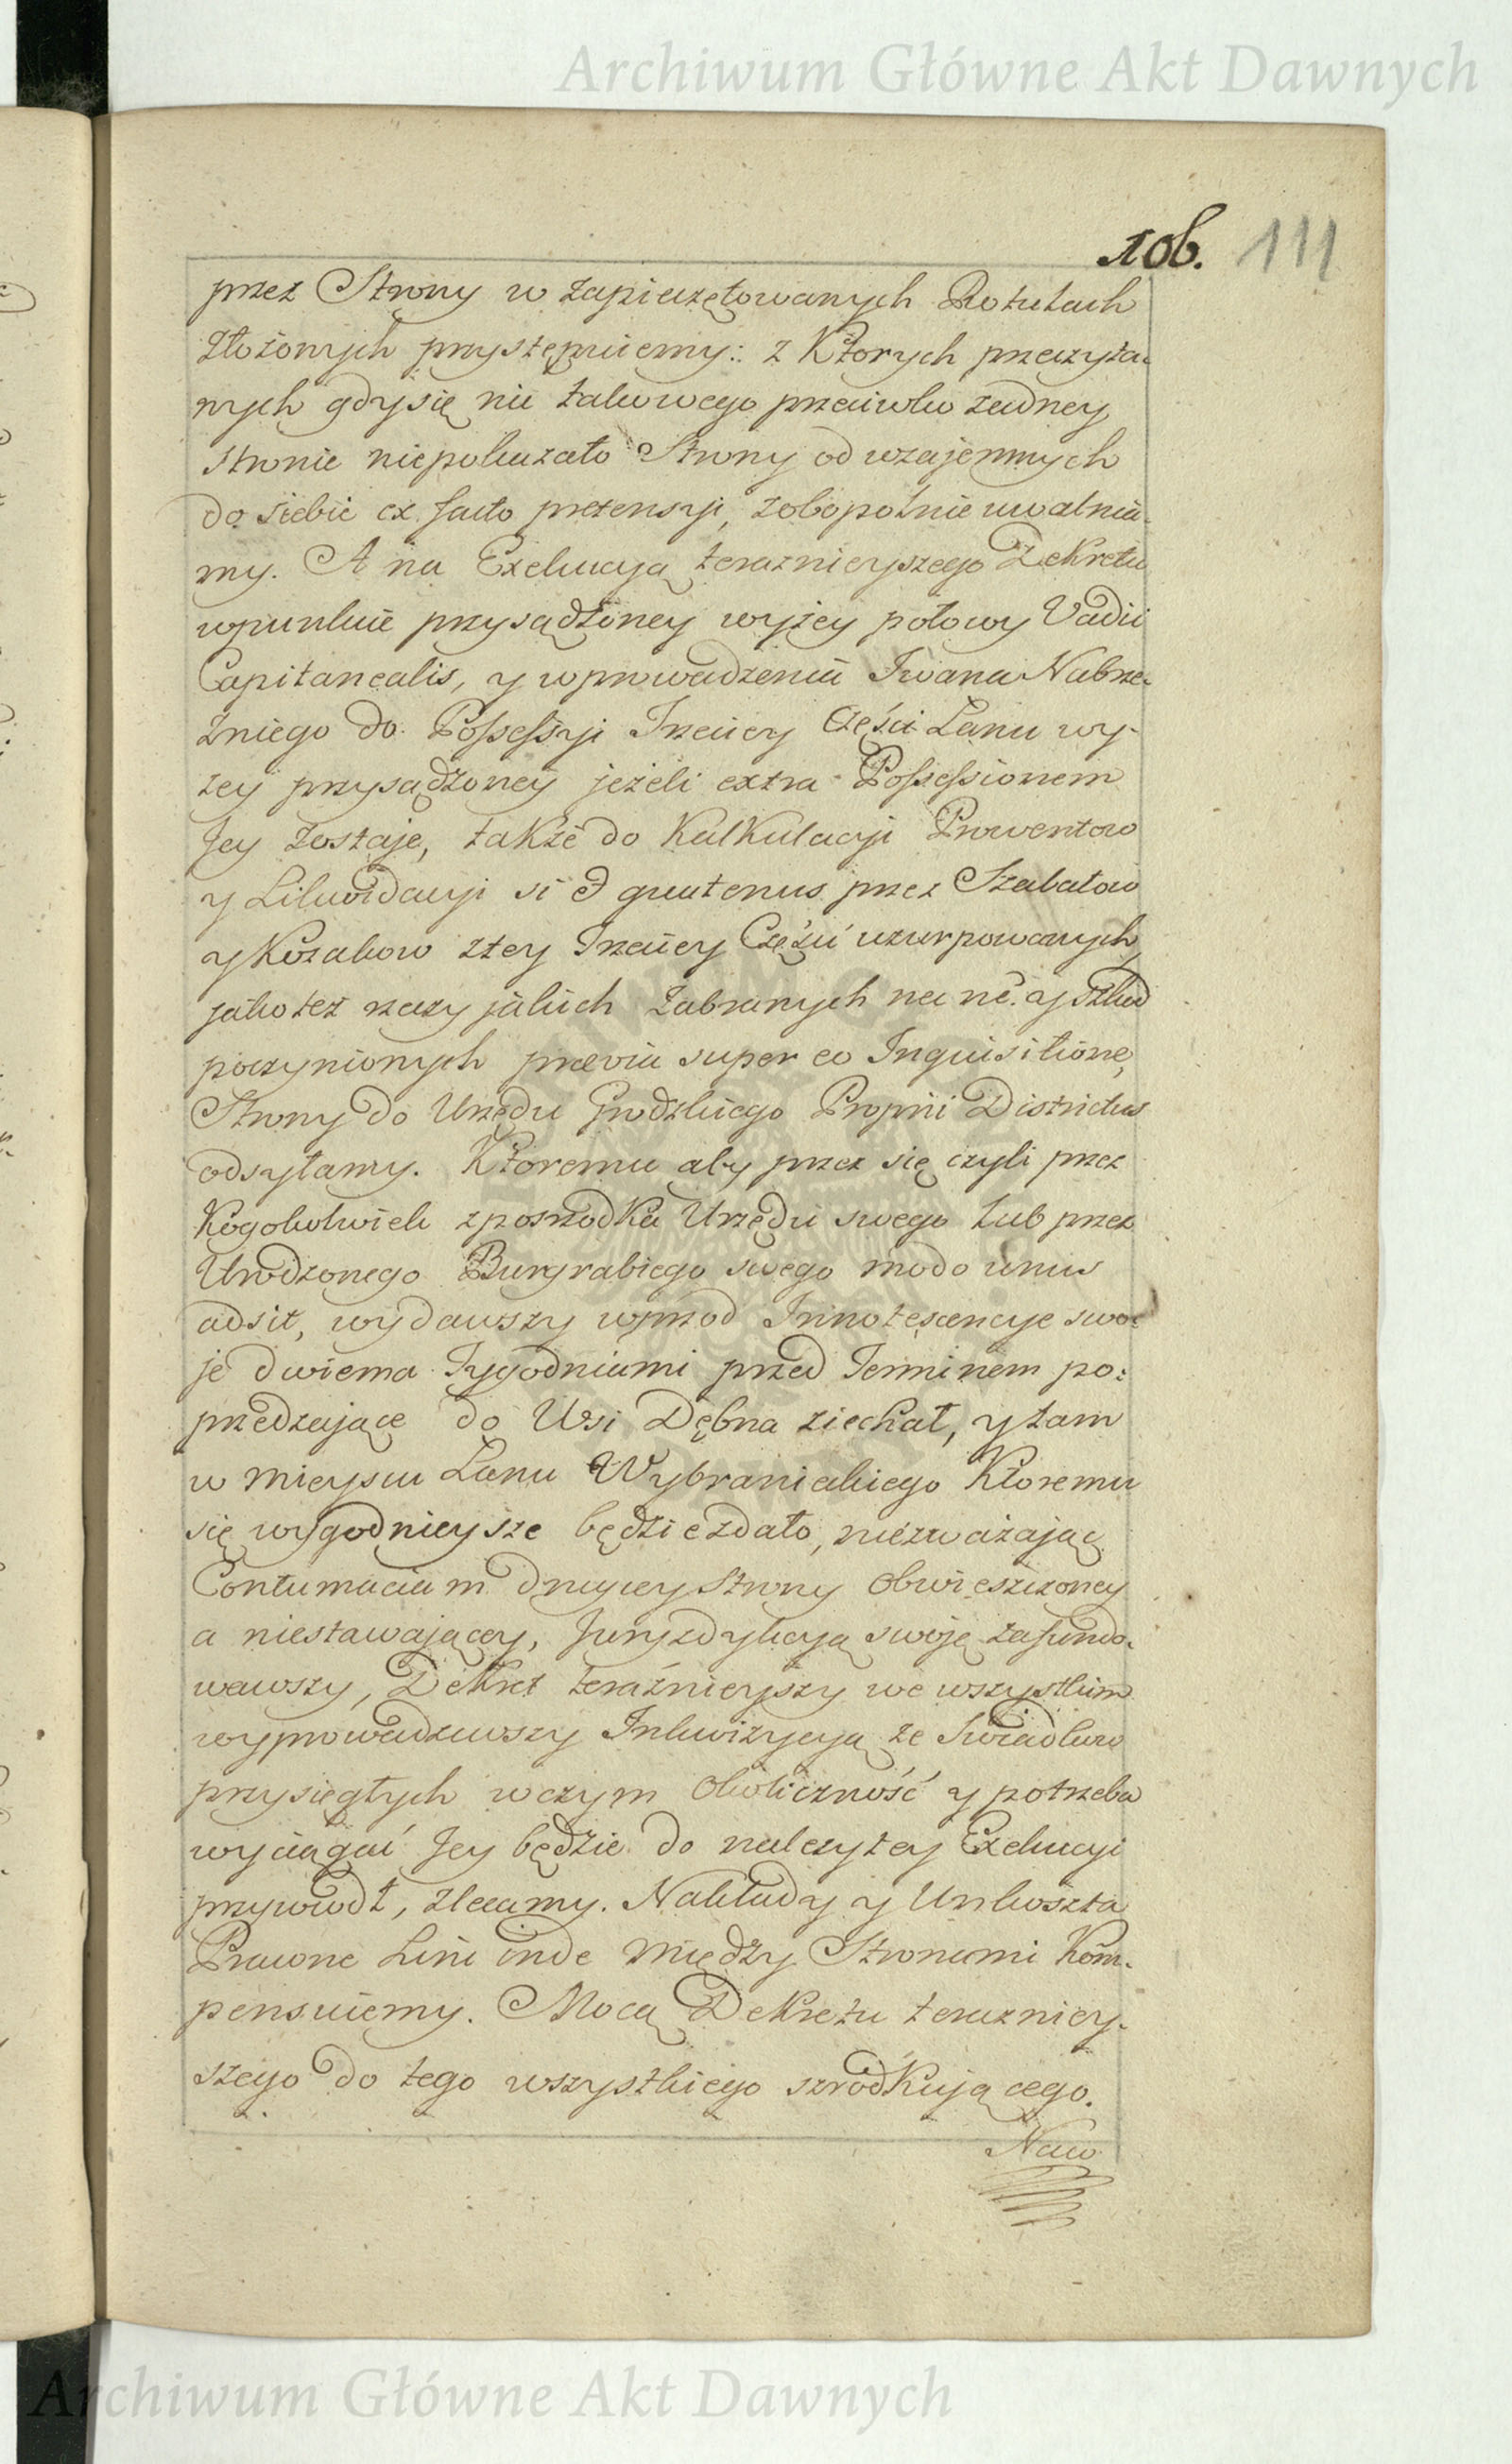 Archiwum Główne Akt Dawnych
106. 111
przez Strony w zapieczętowanych Rotułach
złożonych przystępuiemy: z Ktorych przeczyta-
nych gdy się nic takowego przeciwko żadney
stronie niepokazało Strony od wzajemnych
do siebie ex facto pretensyi, zobopolnie uwalnia-
my. A na Exekucyą teraznieyszego Dekretu
wpunkcie przysądzoney wyżey połowy Vadii
Capitanealis, y wprowadzeniu Iwana Nabrze-
żniego do Possessyi Trzeciey Części Łanu wy-
żey przysądzoney jeżeli extra Possessionem
Jey zostaje, także do Kalkulacyi Prowentow
y Likwidacyi si & quatenus przez Szabatow
y Kozakow z tey Trzeciey Części uzurpowanych,
jako też rzeczy jakich zabranych na nē. y szkod
poczynionych prævia super eo Inquisitione,
Strony do Urzędu Grodzkiego Proprii Districtus
odsyłamy. Ktoremu aby przez się czyli przez
Kogokolwiek zposrzodka Urzędu swego lub przez
Urodzonego Burgrabiego swego modo unus
adsit, wydawszy wprzod Innotescencye swo-
je dwiema Tygodniami przed Terminem po-
przedzające do Wsi Dębna ziechał, y tam
w mieyscu Łanu Wybranieckiego Ktoremu
się wygodnieysze będzie zdało, niezważając
Contumaciam drugiey strony obwieszczoney
a niestawającey, Juryzdykcyą swoję zafundo-
wawszy, Dekret teraźnieyszy we wszystkim
wyprowadziwszy Inkwizycyą ze Swiadkow
przysięgłych w czym okoliczność y potrzeba
wyciągać Jey będzie do należytey Exekucyi
przywiodł, zlecamy. Nakłady y Unkoszta
Prawne hinc inde między Stronami Kom-
pensuiemy. Mocą Dekretu terazniey-
szego do tego wszystkiego szrodkującego.
Naw
Archiwum Główne Akt Dawnych